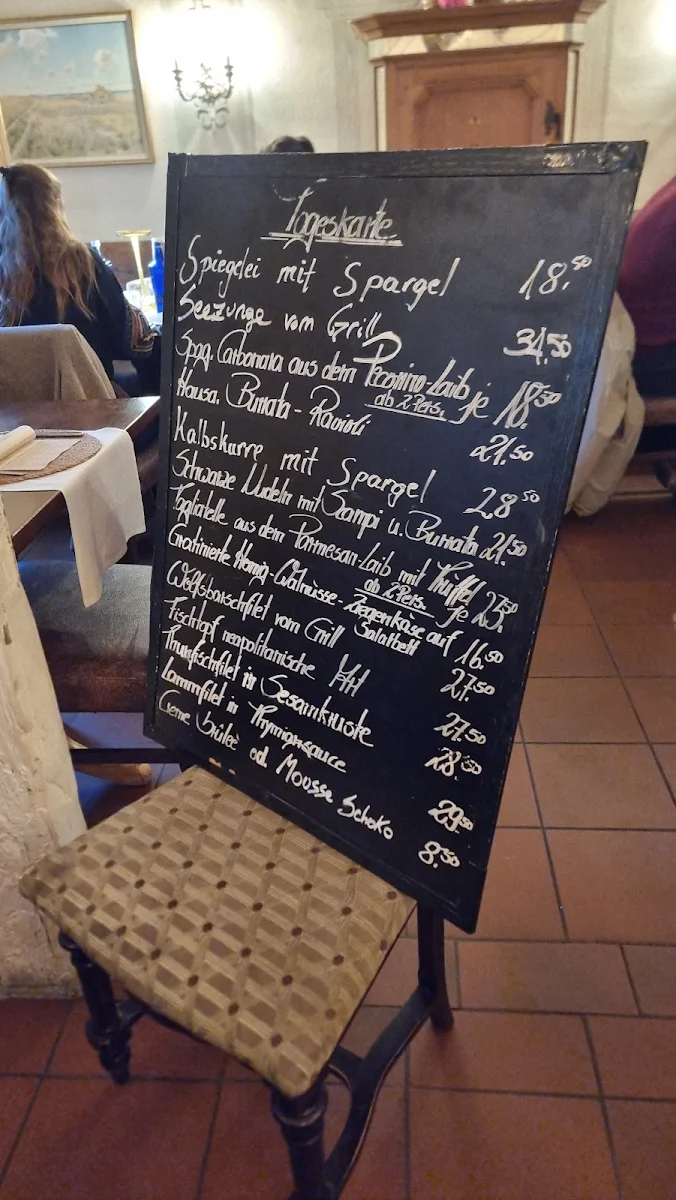 Tageskarte
Spiegelei mit Spargel 18.50
Seezunge vom Grill 34.50
Spag. Carbonara aus dem Pecorino-Laib je 18.50
ab 2 Pers.
Hausg. Burrata - Ravioli 21.50
Kalbskarre mit Spargel 28.50
Schwarze Nudeln mit Sampi u. Burrata 21.50
Tagliatelle aus dem Parmesan-Laib mit Trüffel je 25.50
ab 2 Pers.
Gratinierte Honig-Walnüsse-Ziegenkäse auf 16.50
Salatbett
Wolfsbarschfilet vom Grill 27.50
Fischtopf neapolitanische Art 27.50
Thunfischfilet in Sesamkruste 28.50
Lammfilet in Thymiansauce 29.50
Creme Brulee od. Mousse Schoko 8.50